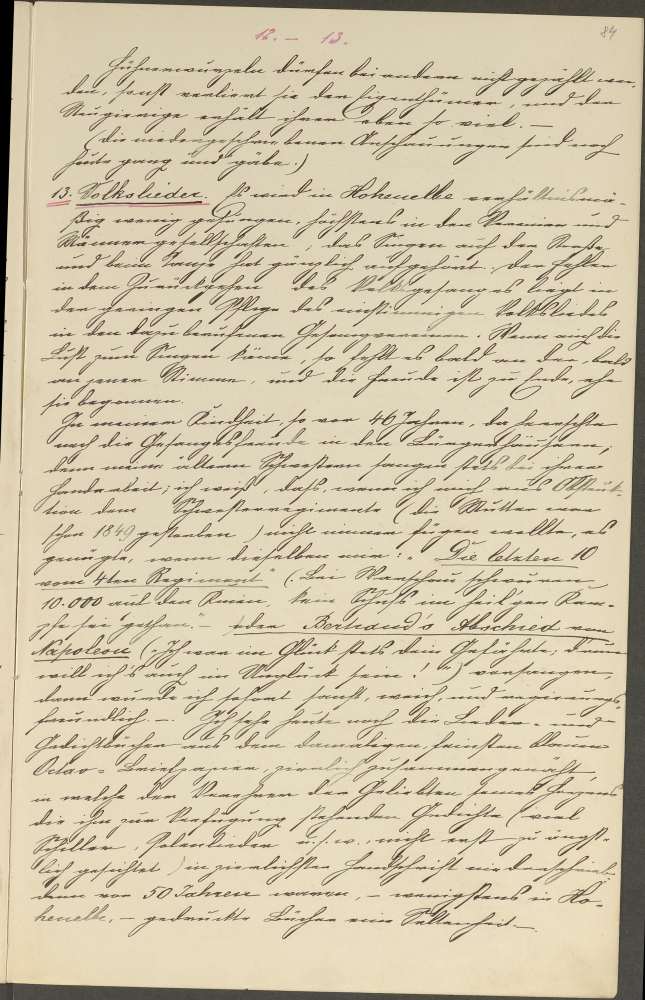 12. – 13.
84
Hühnerwurzeln dürfen bei andern nicht gezählt wer-
den, sonst verliert sie der Eigenthümer, und der
Neugierige erhält ihrer eben so viel. —
(Die niedergeschriebenen Anschauungen sind noch
heute gang und gäbe.)
13. Volkslieder. Es wird in Hohenelbe verhältnismä-
ßig wenig gesungen, höchstens in den Vereinen und
Männergesellschaften, das Singen auf der Straße
und beim Tanze hat gänzlich aufgehört. Der Fehler
in dem Zurückgehen des Volksgesanges liegt in
der geringen Pflege des einstimmigen Volksliedes
in den dazu berufenen Gesangvereinen. Wenn auch die
Lust zum Singen käme, so fehlt es bald an der, bald
an jener Stimme, und die Freude ist zu Ende, ehe
sie begonnen.
In meiner Kindheit, so vor 46 Jahren, da herrschte
noch die Gesangsfreude in den Bürgerhäusern;
denn meine ältern Schwestern sangen stets bei ihrer
Handarbeit; ich weiß, daß, wenn ich mich aus Obstruk-
tion dem Schwesterregimente (die Mutter war
schon 1849 gestorben) nicht immer fügen wollte, es
genügte, wenn dieselben mir: „Die letzten 10
vom 4ten Regiment" (: Bei Warschau schwuren
10.000 auf den Knien, kein Schuß im heil'gen Kam-
pfe sei gethan. – oder Bertrand's Abschied von
Napoleon (: Ich war im Glück stets dein Gefährte; drum
will ich's auch im Unglück sein! :) vorsangen,
dann wurde ich sofort sanft, weich, und regierungs-
freundlich. —. Ich sehe heute noch die Lieder- und
Gedichtbücher aus dem damaligen feinsten blauen
Octav-Briefpapier, zierlich zusammengenäht,
in welche der Verehrer der Geliebten seines Herzens
die ihm zur Verfügung stehenden Gedichte (viel
Schiller, u.s.w., nicht erst zu ängst-
lich gesichtet) in zierlichster Handschrift niederschrieb,
denn vor 50 Jahren waren, – wenigstens in Ho-
henelbe, – gedruckte Bücher eine Seltenheit. —